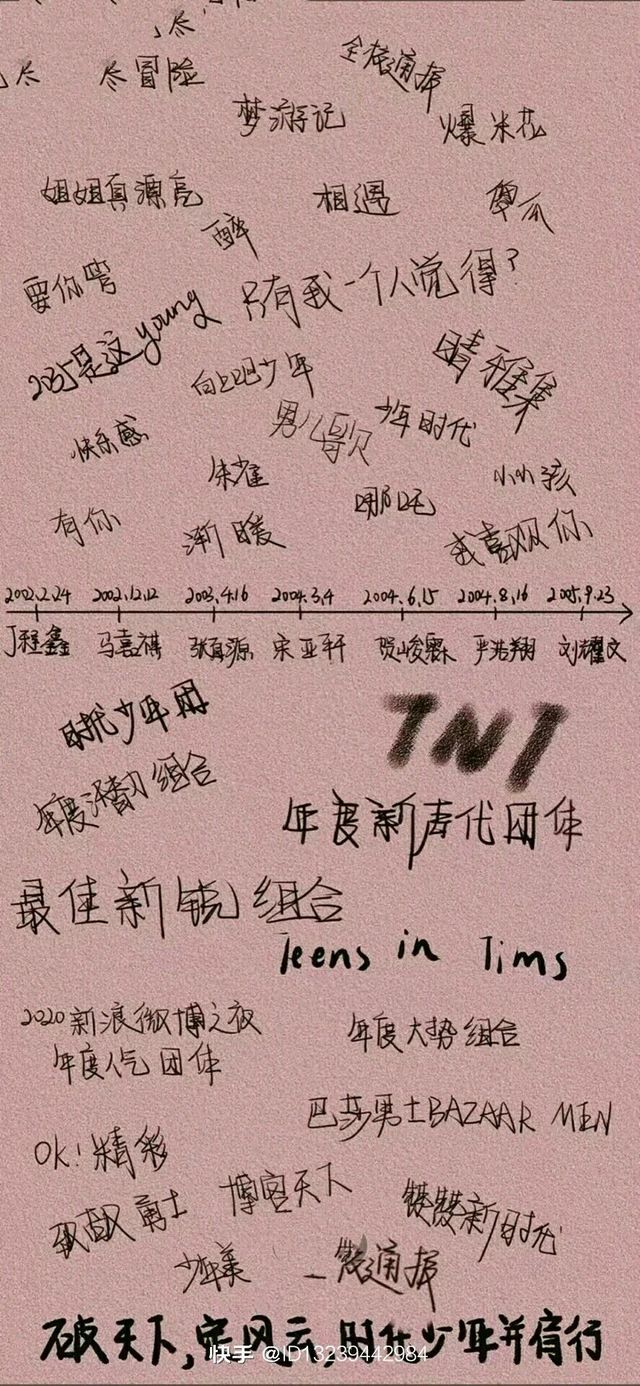 尽
尽
尽冒险
全校通报
梦游记
爆米花
姐姐真源亮
相遇
傻瓜
醉
要你管
只有我一个人觉得?
2035是这young
向上吧少年
晴雅集
快乐感
男儿歌
少年时代
朱雀
小小孩
哪吒
有你
渐暖
我喜欢你
2002.2.24 2002.12.12 2003.4.16 2004.3.4 2004.6.15 2004.8.16 2005.9.23
丁程鑫 马嘉祺 张真源 宋亚轩 贺峻霖 严浩翔 刘耀文
时代少年团
TNT
年度活力组合
年度新声代团体
最佳新锐组合
Teens in Tims
2020新浪微博之夜
年度人气团体
年度大势组合
巴莎男士BAZAAR MEN
OK!精彩
博客天下
少年美
破天下,定风云,时代少年并肩行
快手 @ID13239442984